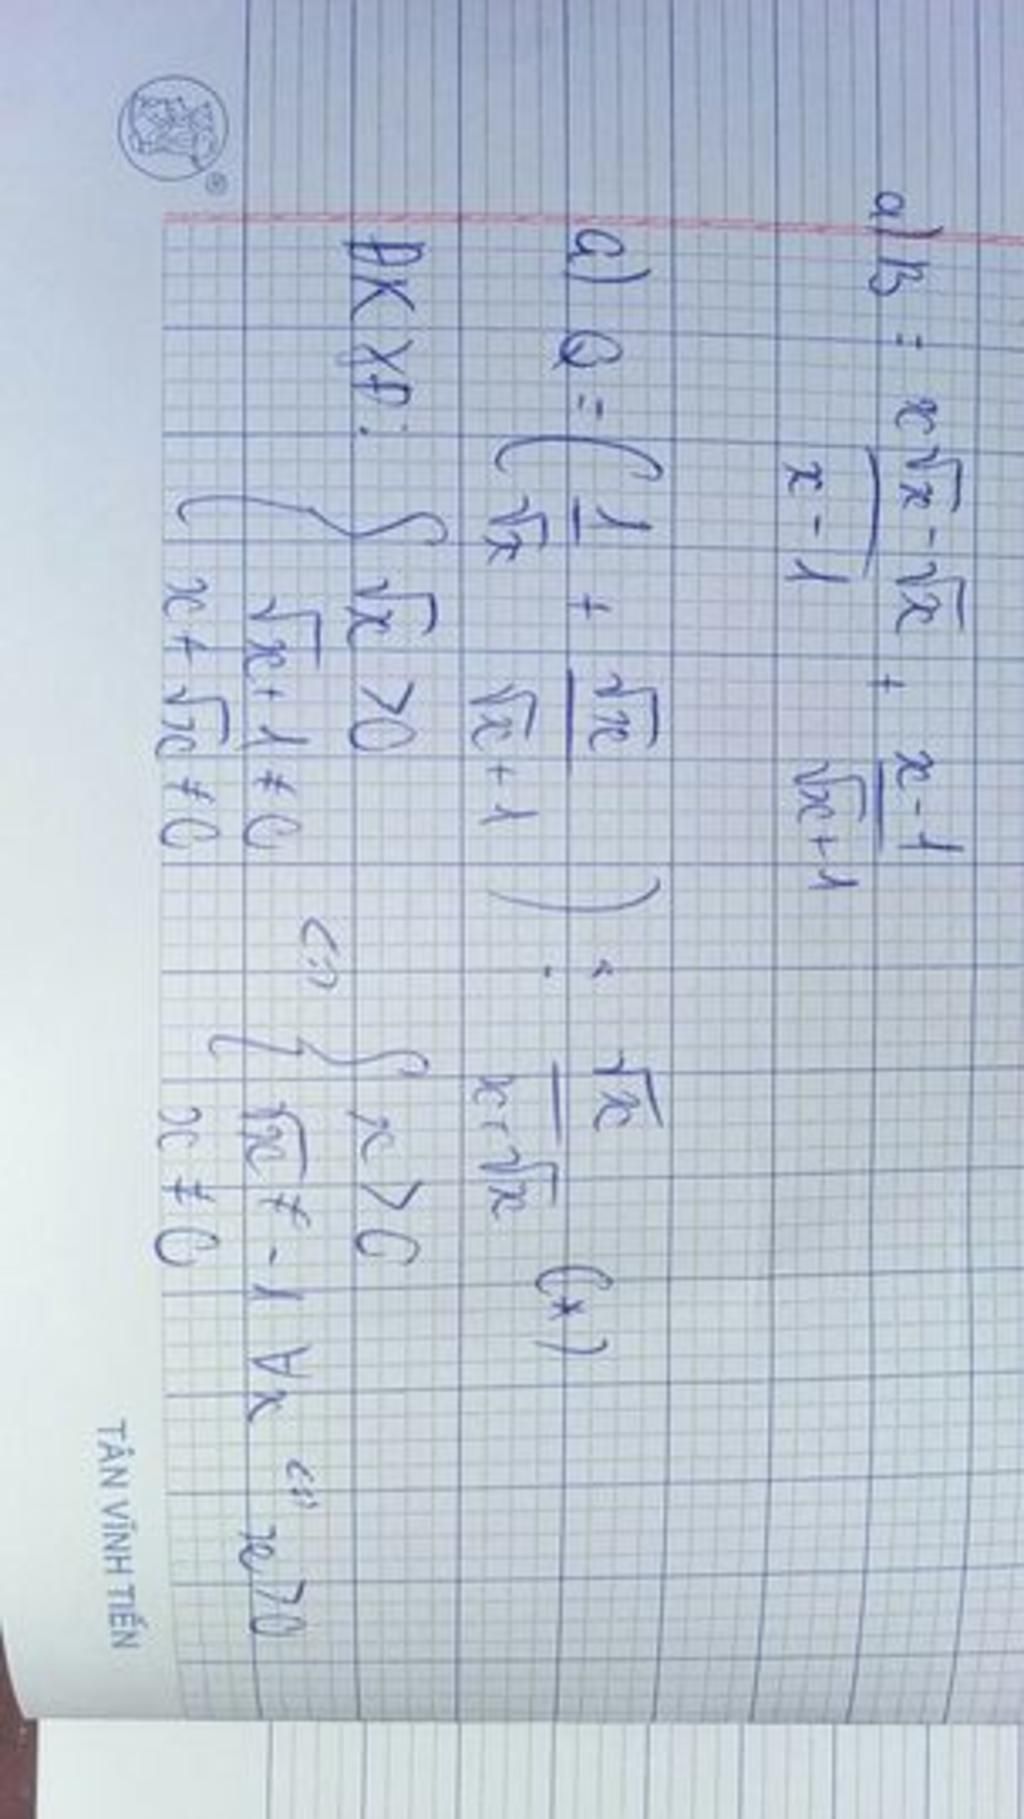 a) B = (x√x - √x)/(x - 1) + (x - 1)/(√x + 1)
a) Q = (1/√x + √x/(√x + 1)) : √x/(x + √x) (*)
ĐKXĐ: { √x > 0
√x + 1 ≠ 0
x + √x ≠ 0
<=> { x > 0
√x ≠ -1 ∀x
x ≠ 0
<=> x > 0
®
TÂN VĨNH TIẾN